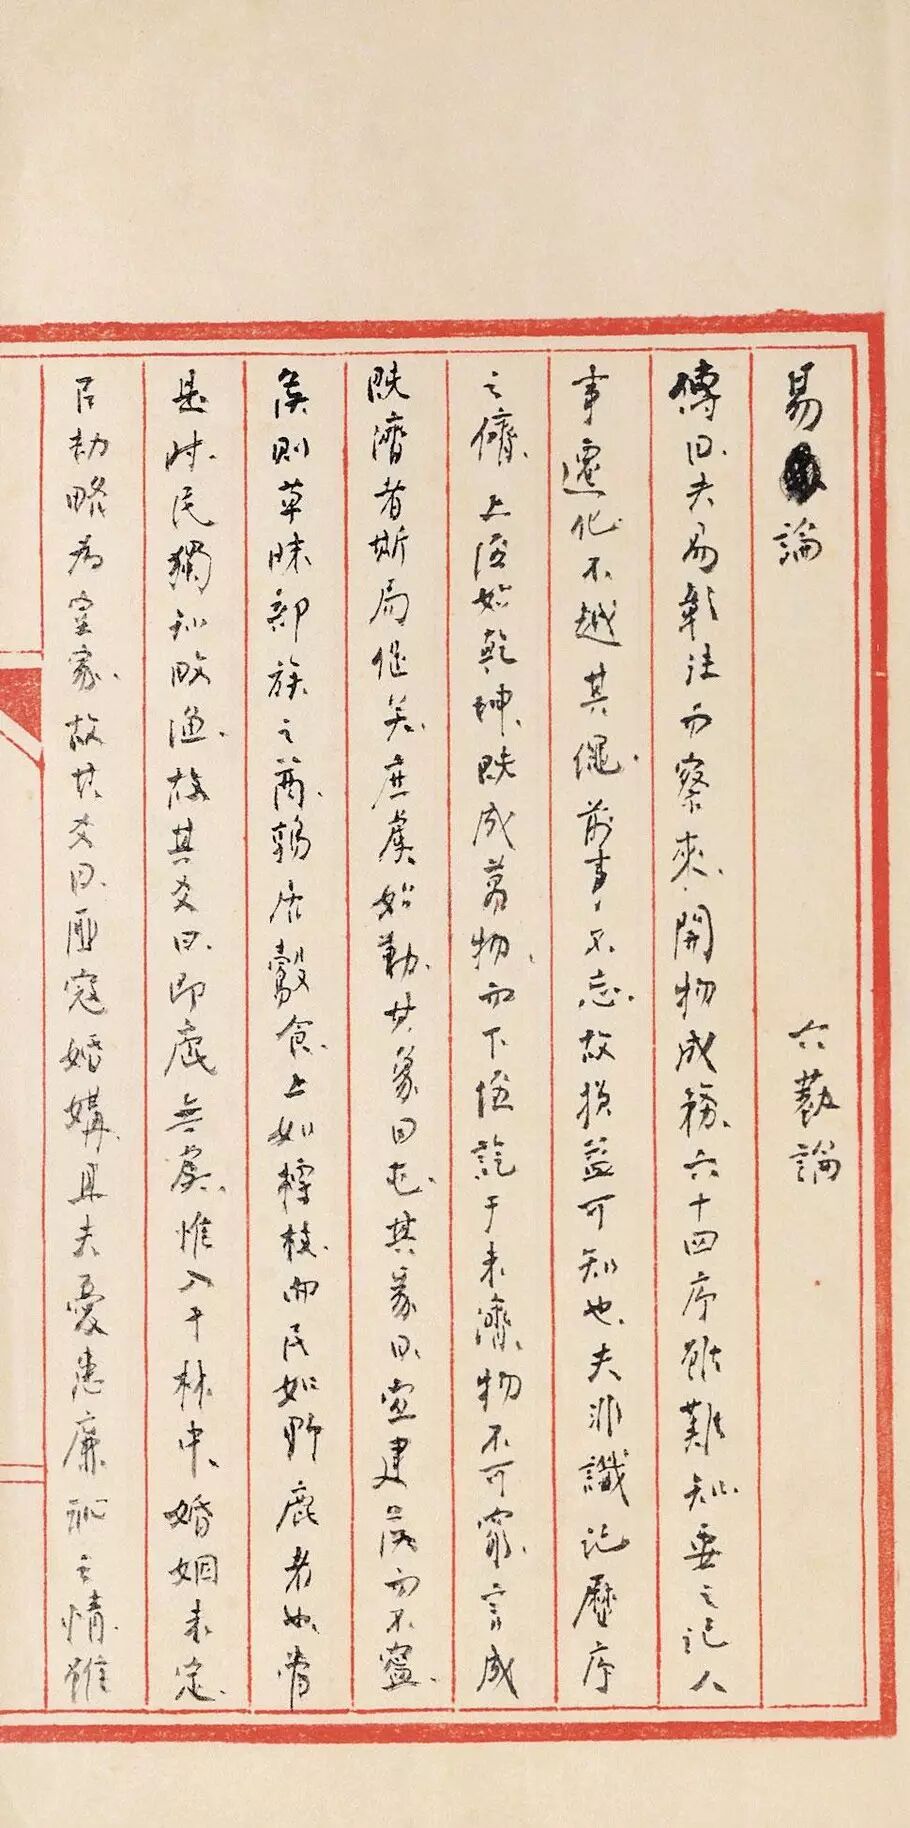 易論　六蓺論
傳曰夫易彰往而察來、開物成務、六十四序雖難知、要之記人
事遷化不越其繩、前事不忘、故損益可知也、夫非讖記歷序
之儕、上經始乾坤、既成萬物、而下經訖于未濟、物不可窮、言成
既濟者斯局促矣、庶虞始動、其彖曰屯、其彖曰宜建侯而不寧、
侯則草昧部族之酋、鶉居鷇食、上如標枝、而民如野鹿者也、當
是時、民獨知畋漁、故其爻曰、即鹿無虞、惟入于林中、婚姻未定、
以劫略為室家、故其爻曰、匪寇婚媾、且夫憂患廉恥之情、雖